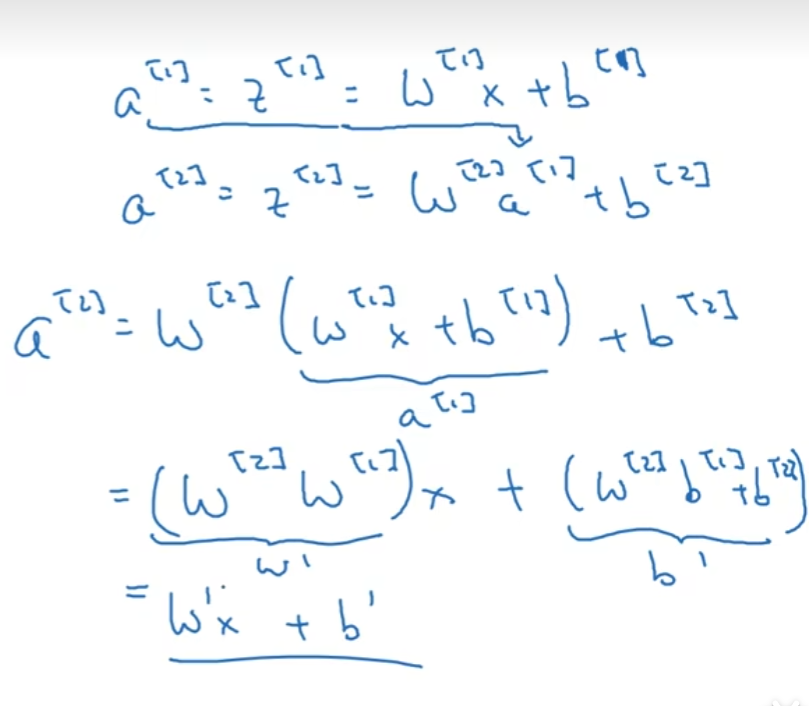 a^[1] = z^[1] = W^[1] x + b^[1]
a^[2] = z^[2] = W^[2] a^[1] + b^[2]
a^[2] = W^[2] (W^[1] x + b^[1]) + b^[2]
a^[1]
= (W^[2] W^[1]) x + (W^[2] b^[1] + b^[2])
W' b'
= W'x + b'